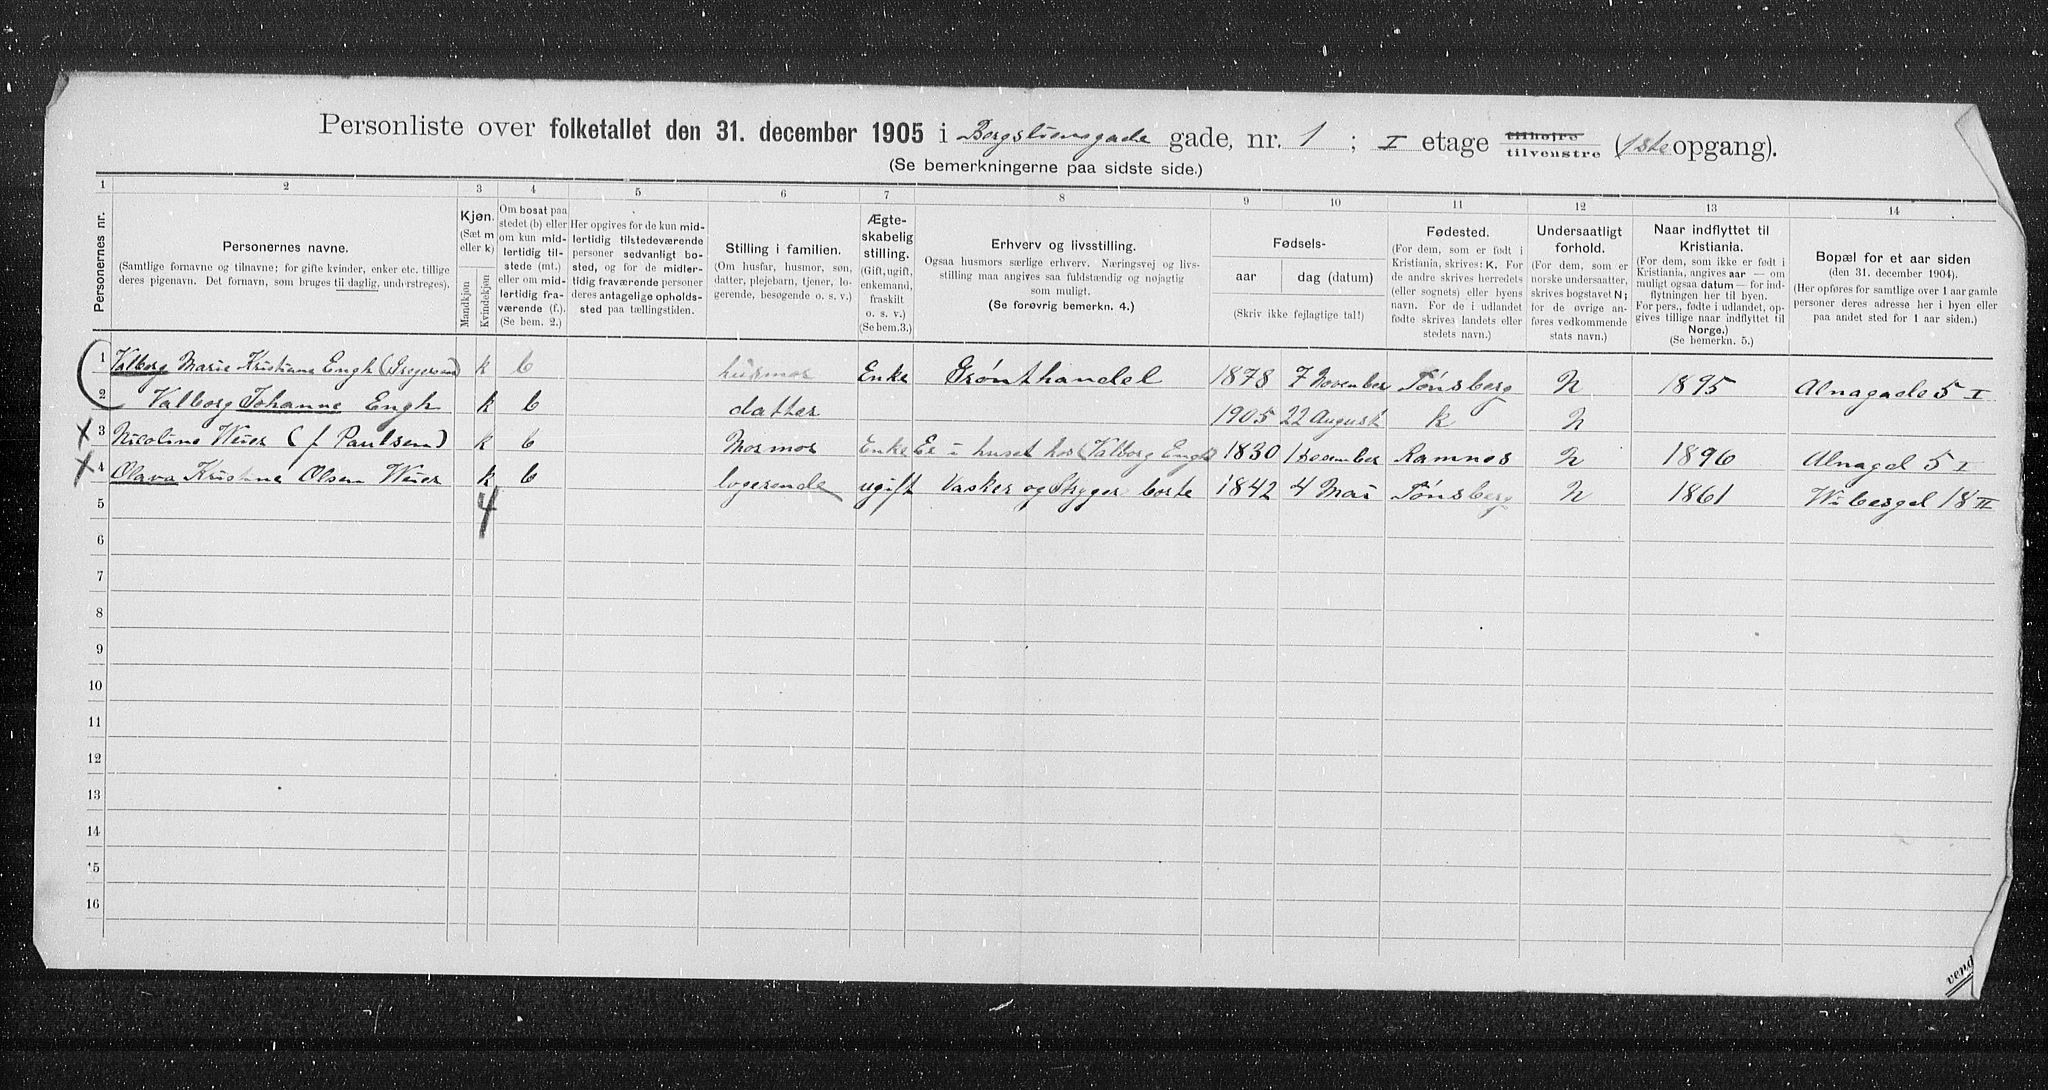 Personliste over folketallet den 31. december 1905 i Borgstiensgade gade, nr. 1; I etage tilhøjre tilvenstre (1ste opgang).
(Se bemerkningerne paa sidste side.)
1 2 3 4 5 6 7 8 9 10 11 12 13 14
Personernes nr.
Personernes navne.
(Samtlige fornavne og tilnavne; for gifte kvinder, enker etc. tillige
deres pigenavn. Det fornavn, som bruges til daglig, understreges).
Kjøn.
(Sæt m
eller k)
Mandkjøn
Kvindekjøn
Om bosat paa
stedet (b) eller
om kun mid-
lertidig til-
stede (mt.)
eller om mid-
lertidig fra-
værende (f.).
(Se bem. 2.)
Her opgives for de kun mid-
lertidig tilstedeværende
personer sedvanligt bo-
sted, og for de midler-
tidig fraværende personer
deres antagelige opholds-
sted paa tællingstiden.
Stilling i familien.
(Om husfar, husmor, søn,
datter, plejebarn, tjener, lo-
gerende, besøgende o. s. v.)
Ægte-
skabelig
stilling.
(Gift, ugift,
enkemand,
fraskilt
o. s. v.)
(Se bem.3.)
Erhverv og livsstilling.
Ogsaa husmors særlige erhverv. Næringsvej og livs-
stilling maa angives saa fuldstændig og nøjagtig
som muligt.
(Se forøvrig bemerkn. 4.)
Fødsels-
aar dag (datum)
(Skriv ikke fejlagtige tal!)
Fødested.
(For dem, som er født i
Kristiania, skrives: K. For
de andre skrives herredets
(eller sognets) eller byens
navn. For de i udlandet
fødte skrives landets eller
stedets navn.)
Undersaatligt
forhold.
(For dem, som er
norske undersaatter,
skrives bogstavet N;
for de øvrige an-
føres vedkommende
stats navn.)
Naar indflyttet til
Kristiania.
(For dem, som ikke er født i
Kristiania, angives aar — om
muligt ogsaa datum — for ind-
flytningen her til byen.
For pers., fødte i udlandet, op-
gives tillige naar indflyttet til
Norge.)
(Se bemerkn. 5.)
Bopæl for et aar siden
(den 31. december 1904).
(Her opføres for samtlige over 1 aar gamle
personer deres adresse her i byen eller
paa andet sted for 1 aar siden.)
1 Valborg Marie Kristiane Engh (Gregersen) k b husmor Enke Grønthandel 1878 7 November Tønsberg N 1895 Alnagade 5 I
2 Valborg Johanne Engh k b datter 1905 22 August k N
3 Nicoline Weier (f Paulsen) k b Mormor Enke Er i huset hos (Valborg Engh) 1830 1 December Ramnes N 1896 Alnagd 5 I
4 Olava Kristine Olsen Weier k b logerende ugift Vasker og Stryger borte 1842 4 Mai Tønsberg N 1861 Wibesgd 18 II
4
5
6
7
8
9
10
11
12
13
14
15
16
vend